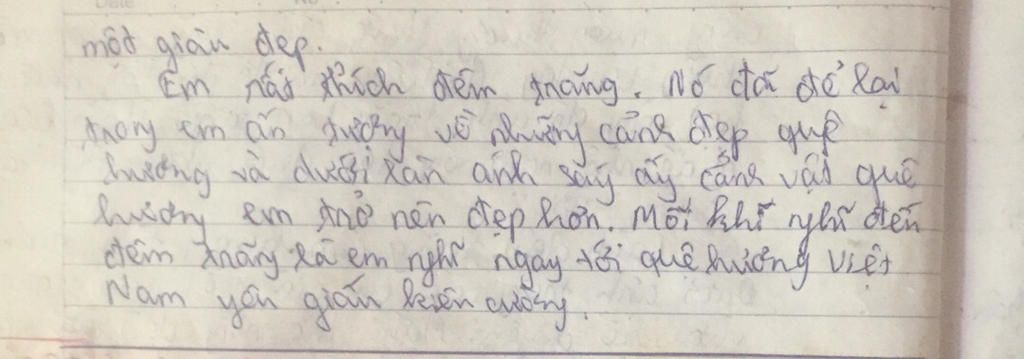 một giàn đẹp.
Em rất thích đêm trăng. Nó đã để lại
trong em ấn tượng về những cảnh đẹp quê
hương và dưới làn ánh sáng ấy cảnh vật quê
hương em trở nên đẹp hơn. Mỗi khi nghĩ đến
đêm trăng là em nghĩ ngay tới quê hương Việt
Nam yên giấn kiên cường.